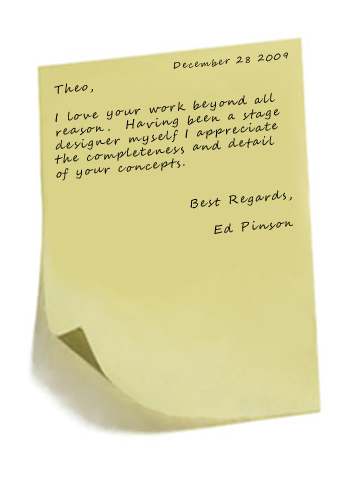 December 28 2009
Theo,
I love your work beyond all
reason. Having been a stage
designer myself I appreciate
the completeness and detail
of your concepts.
Best Regards,
Ed Pinson